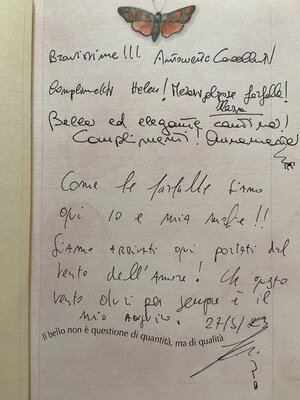 Bravissime!!! Antonietta
Complimenti Helen! Meravigliose farfalle!
Elena
Bella ed elegante continua!
Complimenti! Annamaria
Come le farfalle siamo
qui io e mia moglie!!
Siamo arrivati qui portati dal
vento dell'Amore! Che questo
vento duri per sempre è il
mio augurio. 27/5/23
Il bello non è questione di quantità, ma di qualità